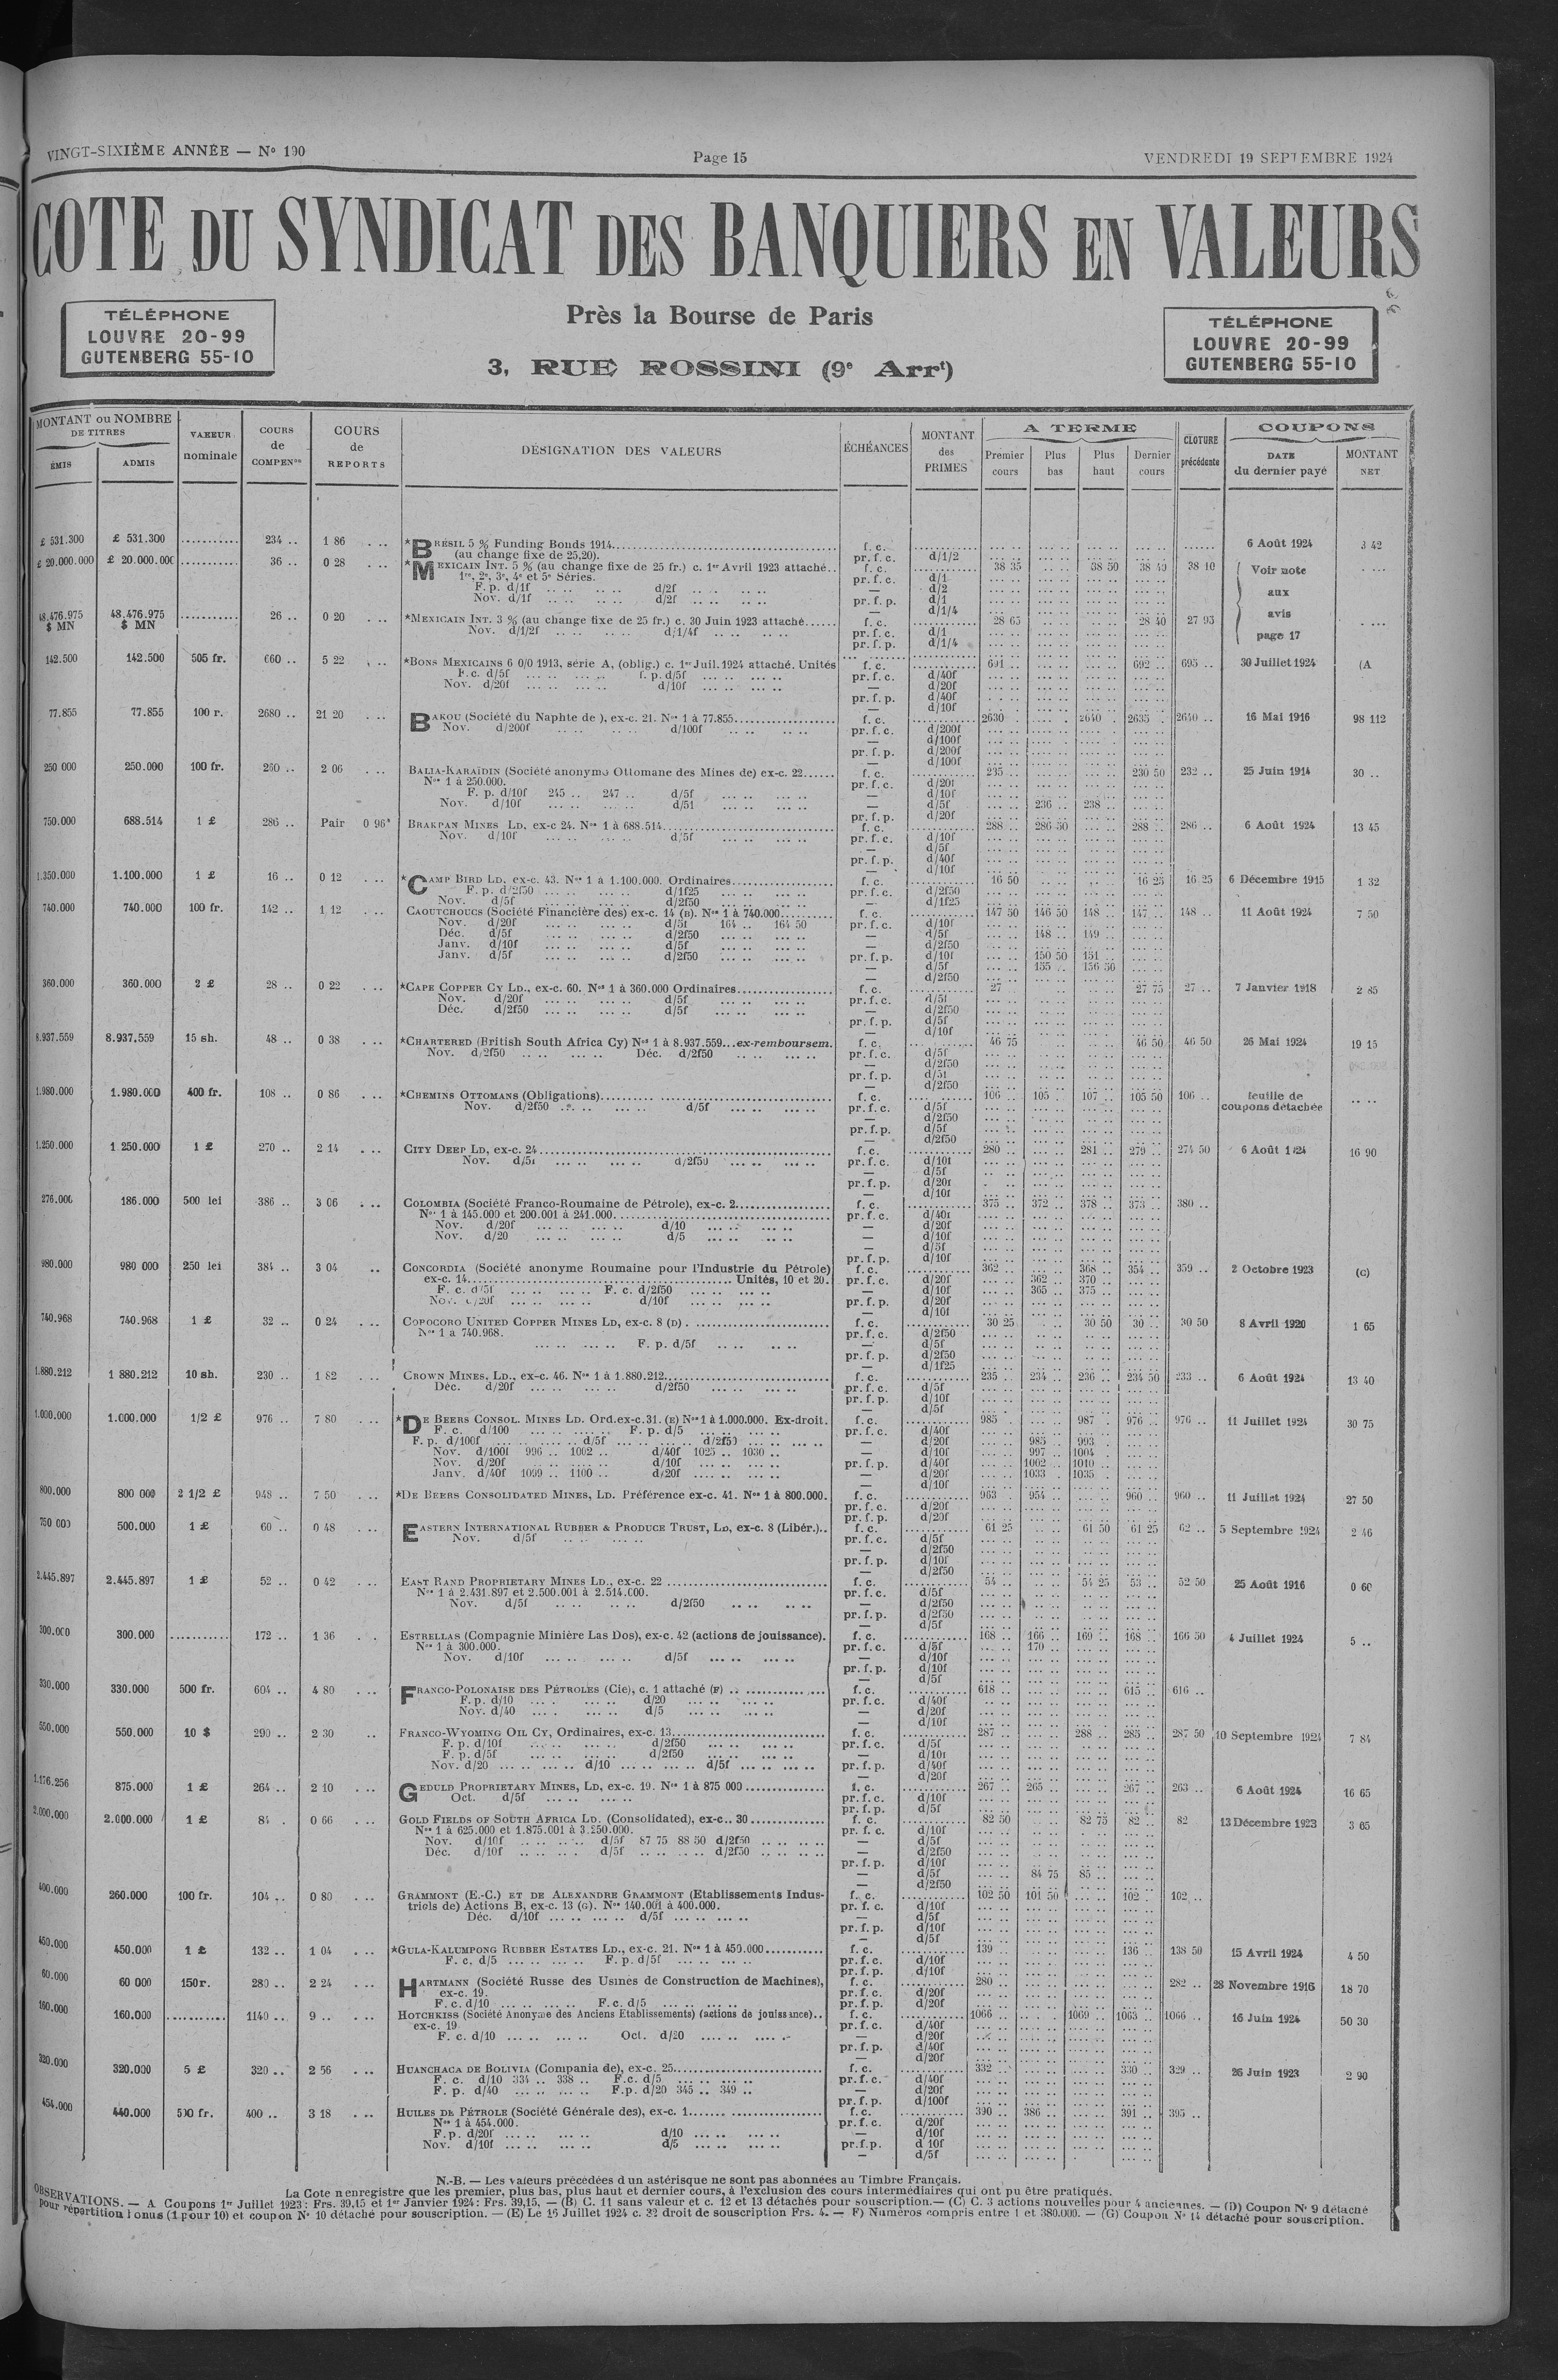 VINGT-SIXIÈME ANNÉE — N° 190
Page 15
VENDREDI 19 SEPTEMBRE 1924
COTE DU SYNDICAT DES BANQUIERS EN VALEURS
TÉLÉPHONE
LOUVRE 20-99
GUTENBERG 55-10
Près la Bourse de Paris
3, RUE ROSSINI (9e Arrt)
TÉLÉPHONE
LOUVRE 20-99
GUTENBERG 55-10
MONTANT ou NOMBRE DE TITRES
ÉMIS ADMIS
VALEUR nominale
COURS de COMPENon
COURS de REPORTS
DÉSIGNATION DES VALEURS
ÉCHÉANCES
MONTANT des PRIMES
A TERME
Premier cours Plus bas Plus haut Dernier cours
CLOTURE précédente
COUPONS
DATE du dernier payé
MONTANT NET
£ 531.300 £ 531.300 .......... 234 .. 1 86 *BRÉSIL 5 % Funding Bonds 1914 f. c. 6 Août 1924 3 42
(au change fixe de 25,20). pr. f. c. d/1/2
£ 20.000.000 £ 20.000.000 .......... 36 .. 0 28 *MEXICAIN INT. 5 % (au change fixe de 25 fr.) c. 1er Avril 1923 attaché.. f. c. 38 35 38 50 38 40 38 10 Voir note
1re, 2e, 3e, 4e et 5e Séries. pr. f. c. d/1
F. p. d/1f d/2f — d/2 aux
Nov. d/1f d/2f pr. f. p. d/1
— d/1/4 avis
48.476.975 $ MN 48.476.975 $ MN .......... 26 .. 0 20 *MEXICAIN INT. 3 % (au change fixe de 25 fr.) c. 30 Juin 1923 attaché...... f. c. 28 65 28 40 27 95
Nov. d/1/2f d/1/4f pr. f. c. d/1 page 17
pr. f. p. d/1/4
142.500 142.500 505 fr. 660 .. 5 22 *BONS MEXICAINS 6 0/0 1913, série A, (oblig.) c. 1er Juil. 1924 attaché. Unités f. c. 691 .. 692 .. 695 .. 30 Juillet 1924 (A
F.c. d/5f f. p. d/5f pr. f. c. d/40f
Nov. d/20f d/10f — d/20f
pr. f. p. d/40f
— d/10f
77.855 77.855 100 r. 2680 .. 21 20 BAKOU (Société du Naphte de), ex-c. 21. Nos 1 à 77.855 f. c. 2630 2640 2635 2640 .. 16 Mai 1916 98 112
Nov. d/200f d/100f pr. f. c. d/200f
— d/100f
pr. f. p. d/200f
— d/100f
250 000 250.000 100 fr. 260 .. 2 06 BALIA-KARAÏDIN (Société anonyme Ottomane des Mines de) ex-c. 22...... f. c. 235 .. 230 50 232 .. 25 Juin 1914 30 ..
Nos 1 à 250.000. pr. f. c. d/20f
F. p. d/10f 245 .. 247 .. d/5f — d/10f
Nov. d/10f d/5f — d/5f 236 .. 238 ..
pr. f. p. d/20f
750.000 688.514 1 £ 286 .. Pair 0 96 BRAKPAN MINES LD, ex-c 24. Nos 1 à 688.514 f. c. 288 .. 286 50 288 .. 286 .. 6 Août 1924 13 45
Nov. d/10f d/5f pr. f. c. d/10f
— d/5f
pr. f. p. d/40f
— d/10f
1.350.000 1.100.000 1 £ 16 .. 0 12 *CAMP BIRD LD, ex-c. 43. Nos 1 à 1.100.000. Ordinaires f. c. 16 50 16 25 16 25 6 Décembre 1915 1 32
F. p. d/2f50 d/1f25 pr. f. c. d/2f50
Nov. d/5f d/2f50 — d/1f25
740.000 740.000 100 fr. 142 .. 1 12 CAOUTCHOUCS (Société Financière des) ex-c. 14 (B). Nos 1 à 740.000 f. c. 147 50 146 50 148 .. 147 .. 148 .. 11 Août 1924 7 50
Nov. d/20f d/5f 164 .. 164 50 pr. f. c. d/10f
Déc. d/5f d/2f50 — d/5f 148 .. 149 ..
Janv. d/10f d/5f — d/2f50
Janv. d/5f d/2f50 pr. f. p. d/10f 150 50 151 ..
— d/5f 155 .. 156 50
— d/2f50
360.000 360.000 2 £ 28 .. 0 22 *CAPE COPPER CY LD., ex-c. 60. Nos 1 à 360.000 Ordinaires f. c. 27 27 75 27 .. 7 Janvier 1918 2 85
Nov. d/20f d/5f pr. f. c. d/5f
Déc. d/2f50 d/5f — d/2f50
pr. f. p. d/5f
— d/10f
8.937.559 8.937.559 15 sh. 48 .. 0 38 *CHARTERED (British South Africa Cy) Nos 1 à 8.937.559...ex-remboursem. f. c. 46 75 46 50 46 50 26 Mai 1924 19 15
Nov. d/2f50 Déc. d/2f50 pr. f. c. d/5f
— d/2f50
pr. f. p. d/5f
— d/2f50
1.980.000 1.980.000 400 fr. 108 .. 0 86 *CHEMINS OTTOMANS (Obligations) f. c. 106 .. 105 .. 107 .. 105 50 106 .. feuille de
Nov. d/2f50 d/5f pr. f. c. d/5f coupons détachée
— d/2f50
pr. f. p. d/5f
— d/2f50
1.250.000 1 250.000 1 £ 270 .. 2 14 CITY DEEP LD, ex-c. 24 f. c. 280 .. 281 .. 279 .. 274 50 6 Août 1924 16 90
Nov. d/5f d/2f50 pr. f. c. d/10f
— d/5f
pr. f. p. d/20f
— d/10f
276.000 186.000 500 lei 386 .. 3 06 COLOMBIA (Société Franco-Roumaine de Pétrole), ex-c. 2 f. c. 375 .. 372 .. 378 .. 373 .. 380 ..
Nos 1 à 145.000 et 200.001 à 241.000 pr. f. c. d/40f
Nov. d/20f d/10 — d/20f
Nov. d/20 d/5 — d/10f
— d/5f
pr. f. p. d/10f
980.000 980 000 250 lei 384 .. 3 04 CONCORDIA (Société anonyme Roumaine pour l'Industrie du Pétrole) f. c. 362 .. 368 .. 354 .. 359 .. 2 Octobre 1923 (C)
ex-c. 14 Unités, 10 et 20. pr. f. c. d/20f 362 .. 370 ..
F. c. d/5f F. c. d/2f50 — d/10f 365 .. 375 ..
Nov. d/20f d/10f pr. f. p. d/20f
— d/10f
740.968 740.968 1 £ 32 .. 0 24 COPOCORO UNITED COPPER MINES LD, ex-c. 8 (D) . f. c. 30 25 30 50 30 .. 30 50 8 Avril 1920 1 65
Nos 1 a 740.968. pr. f. c. d/2f50
F. p. d/5f — d/5f
pr. f. p. d/2f50
— d/1f25
1.880.212 1 880.212 10 sh. 230 .. 1 82 CROWN MINES, LD., ex-c. 46. Nos 1 à 1.880.212 f. c. 235 .. 234 .. 236 .. 234 50 233 .. 6 Août 1924 13 40
Déc. d/20f d/2f50 pr. f. c. d/5f
pr. f. p. d/10f
— d/5f
1.000.000 1.000.000 1/2 £ 976 .. 7 80 *DE BEERS CONSOL. MINES LD. Ord. ex-c. 31. (E) Nos 1 à 1.000.000. Ex-droit. f. c. 985 987 976 .. 976 .. 11 Juillet 1924 30 75
F. c. d/100 F. p. d/5 pr. f. c. d/40f
F. p. d/100f d/5f d/2f50 — d/20f 985 .. 993
Nov. d/100f 996 .. 1002 .. d/40f 1025 .. 1030 .. — d/10f 997 1004
Nov. d/20f d/10f pr. f. p. d/40f 1002 1010
Janv. d/40f 1099 .. 1100 .. d/20f — d/20f 1033 1035
— d/10f
800.000 800 000 2 1/2 £ 948 .. 7 50 *DE BEERS CONSOLIDATED MINES, LD. Préférence ex-c. 41. Nos 1 à 800.000. f. c. 963 954 .. 960 .. 960 .. 11 Juillet 1924 27 50
pr. f. c. d/20f
pr. f. p. d/20f
750 000 500.000 1 £ 60 .. 0 48 EASTERN INTERNATIONAL RUBBER & PRODUCE TRUST, LD, ex-c. 8 (Libér.).. f. c. 61 25 61 50 61 25 62 .. 5 Septembre 1924 2 46
Nov. d/5f pr. f. c. d/5f
— d/2f50
pr. f. p. d/10f
— d/2f50
2.445.897 2.445.897 1 £ 52 .. 0 42 EAST RAND PROPRIETARY MINES LD., ex-c. 22 f. c. 54 54 25 53 .. 52 50 25 Août 1916 0 60
Nos 1 à 2.431.897 et 2.500.001 à 2.514.000. pr. f. c. d/5f
Nov. d/5f d/2f50 — d/2f50
pr. f. p. d/2f50
— d/5f
300.000 300.000 .......... 172 .. 1 36 ESTRELLAS (Compagnie Minière Las Dos), ex-c. 42 (actions de jouissance). f. c. 168 166 .. 169 .. 168 .. 166 50 4 Juillet 1924 5 ..
Nos 1 à 300.000. pr. f. c. d/5f 170 ..
Nov. d/10f d/5f — d/10f
pr. f. p. d/10f
— d/5f
330.000 330.000 500 fr. 604 .. 4 80 FRANCO-POLONAISE DES PÉTROLES (Cie), c. 1 attaché (F) f. c. 618 615 .. 616 ..
F. p. d/10 d/20 pr. f. c. d/40f
Nov. d/40 d/5 — d/20f
— d/10f
550.000 550.000 10 $ 290 .. 2 30 FRANCO-WYOMING OIL CY, Ordinaires, ex-c. 13 f. c. 287 .. 288 .. 285 .. 287 50 10 Septembre 1924 7 84
F. p. d/10f d/2f50 pr. f. c. d/5f
F. p. d/5f d/2f50 — d/10f
Nov. d/20 d/10 d/5f pr. f. p. d/40f
— d/20f
1.176.256 875.000 1 £ 264 .. 2 10 GEDULD PROPRIETARY MINES, LD, ex-c. 19. Nos 1 à 875 000 f. c. 267 .. 265 .. 267 .. 263 .. 6 Août 1924 16 65
Oct. d/5f pr. f. c. d/10f
pr. f. p. d/5f
2.000.000 2.000.000 1 £ 84 . 0 66 GOLD FIELDS OF SOUTH AFRICA LD. (Consolidated), ex-c.. 30 f. c. 82 50 82 75 82 .. 82 13 Décembre 1923 3 65
Nos 1 à 625.000 et 1.875.001 à 3.250.000. pr. f. c. d/10f
Nov. d/10f d/5f 87 75 88 50 d/2f50 — d/5f
Déc. d/10f d/5f d/2f50 — d/2f50
pr. f. p. d/10f
— d/5f 84 75 85 ..
— d/2f50
400.000 260.000 100 fr. 104 .. 0 80 GRAMMONT (E.-C.) ET DE ALEXANDRE GRAMMONT (Etablissements Indus- f. c. 102 50 101 50 102 .. 102 ..
triels de) Actions B, ex-c. 13 (G). Nos 140.001 à 400.000. pr. f. c. d/10f
Déc. d/10f d/5f — d/5f
pr. f. p. d/10f
— d/5f
450.000 450.000 1 £ 132 .. 1 04 *GULA-KALUMPONG RUBBER ESTATES LD., ex-c. 21. Nos 1 à 450.000 f. c. 139 136 .. 138 50 15 Avril 1924 4 50
F. c. d/5 F. p. d/5f pr. f. c. d/10f
pr. f. p. d/10f
60.000 60 000 150 r. 280 .. 2 24 HARTMANN (Société Russe des Usines de Construction de Machines), f. c. 280 282 .. 28 Novembre 1916 18 70
ex-c. 19. pr. f. c. d/20f
F. c. d/10 F. c. d/5 pr. f. p. d/20f
160.000 160.000 .......... 1140 .. 9 .. HOTCHKISS (Société Anonyme des Anciens Etablissements) (actions de jouissance).. f. c. 1066 1069 .. 1065 1066 .. 16 Juin 1924 50 30
ex-c. 19 pr. f. c. d/40f
F. c. d/10 Oct. d/20 — d/20f
pr. f. p. d/40f
— d/20f
320.000 320.000 5 £ 320 .. 2 56 HUANCHACA DE BOLIVIA (Compania de), ex-c. 25 f. c. 332 330 .. 329 .. 26 Juin 1923 2 90
F. c. d/10 334 .. 338 .. F.c. d/5 pr. f. c. d/40f
F. p. d/40 F.p. d/20 345 .. 349 .. — d/20f
pr. f. p. d/100f
454.000 440.000 500 fr. 400 .. 3 18 HUILES DE PÉTROLE (Société Générale des), ex-c. 1 f. c. 390 386 .. 391 .. 395 ..
Nos 1 à 454.000. pr. f. c. d/20f
F.p. d/20f d/10 — d/10f
Nov. d/10f d/5 pr. f. p. d 10f
— d/5f
N.-B. — Les valeurs précédées d un astérisque ne sont pas abonnées au Timbre Français.
La Cote n enregistre que les premier, plus bas, plus haut et dernier cours, à l'exclusion des cours intermédiaires qui ont pu être pratiqués.
OBSERVATIONS. — A Coupons 1er Juillet 1923 : Frs. 39,15 et 1er Janvier 1924 : Frs. 39,15. — (B) C. 11 sans valeur et c. 12 et 13 détachés pour souscription. — (C) C. 3 actions nouvelles pour 4 anciennes. — (D) Coupon N° 9 détaché
pour répartition bonus (1 pour 10) et coupon N° 10 détaché pour souscription. — (E) Le 16 Juillet 1924 c. 32 droit de souscription Frs. 4. — F) Numéros compris entre 1 et 380.000. — (G) Coupon N° 14 détaché pour souscription.